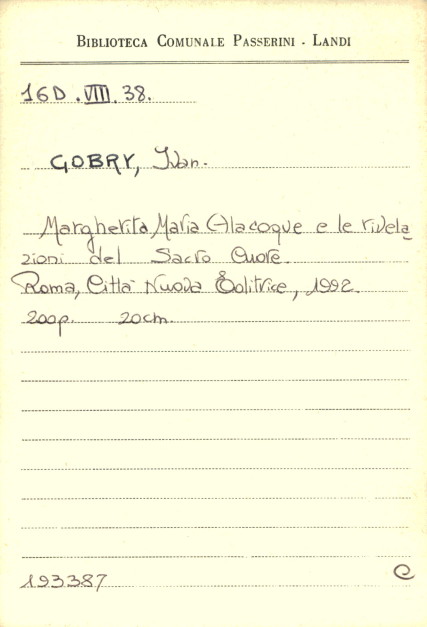 BIBLIOTECA COMUNALE PASSERINI - LANDI
16D.VIII.38.
GOBRY, Ivan.
Margherita Maria Alacoque e le rivela
zioni del Sacro Cuore.
Roma, Città Nuova Editrice, 1992.
200p. 20cm.
193387
C